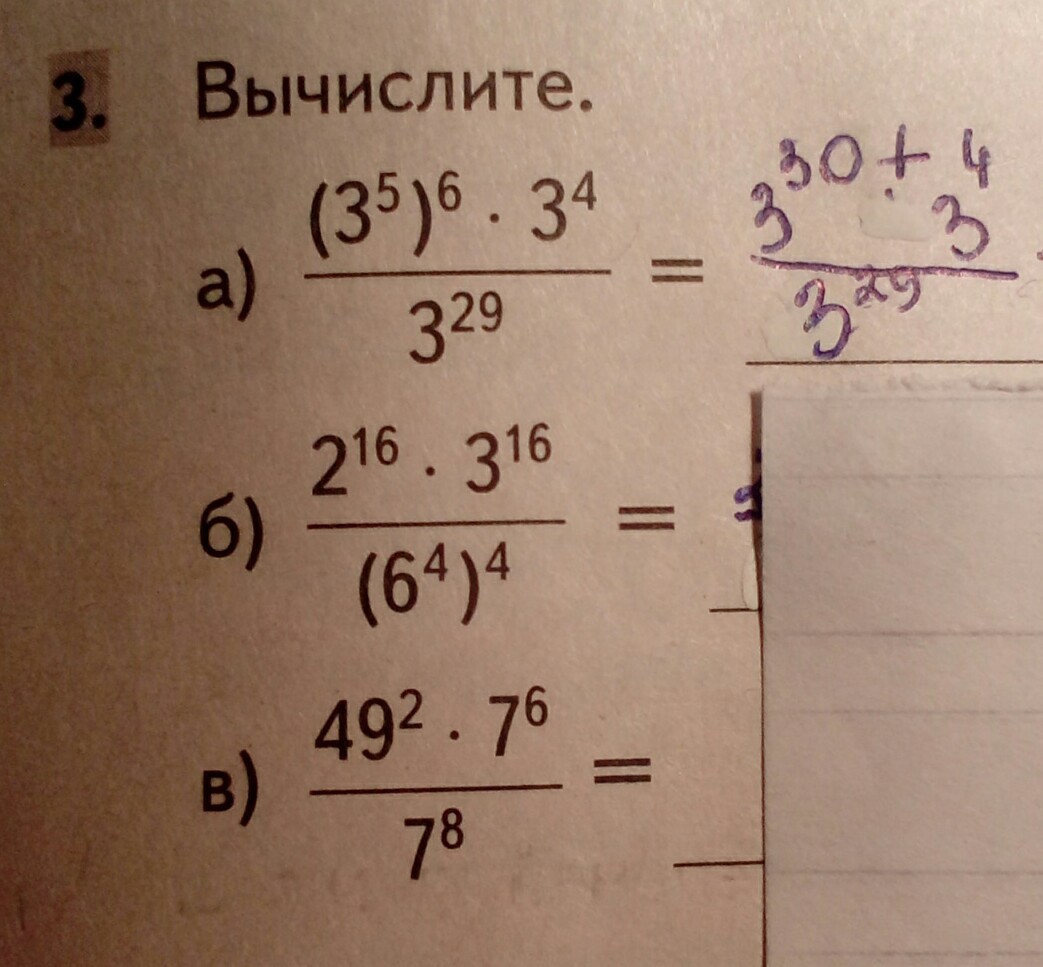 3. Вычислите.
а) (3⁵)⁶ · 3⁴ / 3²⁹ = 3³⁰⁺ · 3⁴ / 3²⁹
б) 2¹⁶ · 3¹⁶ / (6⁴)⁴ =
в) 49² · 7⁶ / 7⁸ =